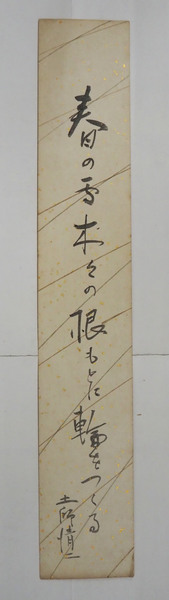 春の雪木々の根もとに輪をつくる
土師清二